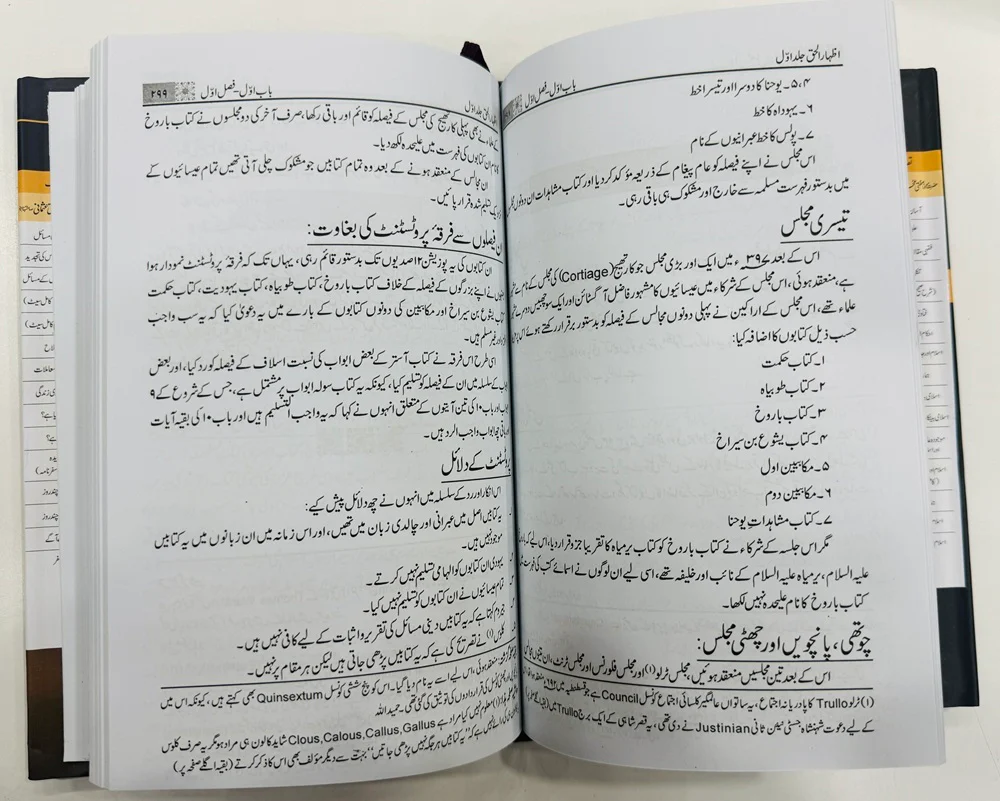 اظہار الحق جلد اوّل
باب اوّل۔ فصل اوّل
۴، ۵۔ یوحنا کا دوسرا اور تیسرا خط
۶۔ یہوداہ کا خط
۷۔ پولس کا خط عبرانیوں کے نام
اس مجلس نے اپنے فیصلہ کو عام پیغام کے ذریعہ مؤکد کر دیا اور کتاب مشاہدات ان دونوں
میں بدستور فہرست مسلمہ سے خارج اور مشکوک ہی باقی رہی۔
تیسری مجلس
اس کے بعد ۳۹۷ء میں ایک اور بڑی مجلس جو کارتھیج (Cortiage) کی مجلس کے نام سے
ہے، منعقد ہوئی، اس مجلس کے شرکاء میں عیسائیوں کا مشہور فاضل آگسٹائن اور ایک سو چھبیس دوسرے
علماء تھے، اس مجلس کے اراکین نے پہلی دونوں مجالس کے فیصلہ کو بدستور برقرار رکھتے ہوئے اس پر
حسب ذیل کتابوں کا اضافہ کیا:
۱۔ کتاب حکمت
۲۔ کتاب طوبیاہ
۳۔ کتاب باروخ
۴۔ کتاب یشوع بن سیراخ
۵۔ مکابیین اول
۶۔ مکابیین دوم
۷۔ کتاب مشاہدات یوحنا
مگر اس جلسہ کے شرکاء نے کتاب باروخ کو کتاب یرمیاہ کا تقریباً جزو قرار دیا، اس لیے کہ باروخ
علیہ السلام، یرمیاہ علیہ السلام کے نائب اور خلیفہ تھے، اسی لیے ان لوگوں نے اسمائے کتب کی فہرست
کتاب باروخ کا نام علیحدہ نہیں لکھا۔
چوتھی، پانچویں اور چھٹی مجلس:
اس کے بعد تین مجلسیں منعقد ہوئیں، مجلس ٹرلو (۱) اور مجلس فلورنس اور مجلس ٹرنٹ، ان تینوں
(۱) ٹرلو Trullo کا پادریانہ اجتماع، یہ ساتواں عالمگیر کلسائی اجتماع کونسل Council ہے جو قسطنطنیہ میں ۶۹۲ء
کے لیے دعوت شہنشاہ جسٹی نین ثانی Justinian نے دی تھی، یہ قصر شاہی کے ایک برج Trullo میں
باب اوّل۔ فصل اوّل
۲۹۹
اظہار الحق جلد اوّل
کے علماء نے بھی پہلی کارتھیج کی مجلس کے فیصلہ کو قائم اور باقی رکھا، صرف آخر کی دو مجلسوں نے کتاب باروخ
کا نام ان کتابوں کی فہرست میں علیحدہ لکھ دیا۔
ان مجالس کے منعقد ہونے کے بعد وہ تمام کتابیں جو مشکوک چلی آتی تھیں تمام عیسائیوں کے
نزدیک تسلیم شدہ قرار پائیں۔
ان فیصلوں سے فرقۂ پروٹسٹنٹ کی بغاوت:
ان کتابوں کی یہ پوزیشن ۱۲ صدیوں تک بدستور قائم رہی، یہاں تک کہ فرقۂ پروٹسٹنٹ نمودار ہوا
نے اپنے بزرگوں کے فیصلہ کے خلاف کتاب باروخ، کتاب طوبیاہ، کتاب یہودیت، کتاب حکمت
یشوع بن سیراخ اور مکابیین کی دونوں کتابوں کے بارے میں یہ دعویٰ کیا کہ یہ سب واجب
اور غیر مسلم ہیں۔
اسی طرح اس فرقہ نے کتاب آستر کے بعض ابواب کی نسبت اسلاف کے فیصلہ کو رد کیا، اور بعض
کے سلسلہ میں ان کے فیصلہ کو تسلیم کیا، کیونکہ یہ کتاب سولہ ابواب پر مشتمل ہے، جس کے شروع کے ۹
اور باب ۱۰ کی تین آیتوں کے متعلق انہوں نے کہا کہ یہ واجب التسلیم ہیں اور باب ۱۰ کی بقیہ آیات
اور باقی چھ ابواب واجب الرد ہیں۔
پروٹسٹنٹ کے دلائل
اس انکار اور رد کے سلسلہ میں انہوں نے چھ دلائل پیش کیے:
یہ کتابیں اصل میں عبرانی اور چالدی زبان میں تھیں، اور اس زمانہ میں ان زبانوں میں یہ کتابیں
موجود نہیں ہیں۔
یہودی ان کتابوں کو الہامی تسلیم نہیں کرتے۔
تمام عیسائیوں نے ان کتابوں کو تسلیم نہیں کیا۔
جیروم کہتا ہے کہ یہ کتابیں دینی مسائل کی تقریر و اثبات کے لیے کافی نہیں ہیں۔
کلوس (۱) نے تصریح کی ہے کہ یہ کتابیں پڑھی جاتی ہیں لیکن ہر مقام پر نہیں۔
منعقد ہوئی، اس لیے اسے یہ نام دیا گیا۔ اس کو پنج ششی کونسل Quinsextum بھی کہتے ہیں، کیونکہ اس میں
کونسل کی قراردادوں کی توثیق کی گئی تھی۔ حمید اللہ
(۱) معلوم نہیں کیا مراد ہے Clous, Calous, Callus, Gallus شاید کالون ہی مراد ہو مگر یہ صرف کلوس
ہے کہ ”یہ کتابیں ہر جگہ نہیں پڑھی جاتیں“ بہت سے دیگر مؤلف بھی اس کا ذکر کرتے (بقیہ اگلے صفحہ پر)